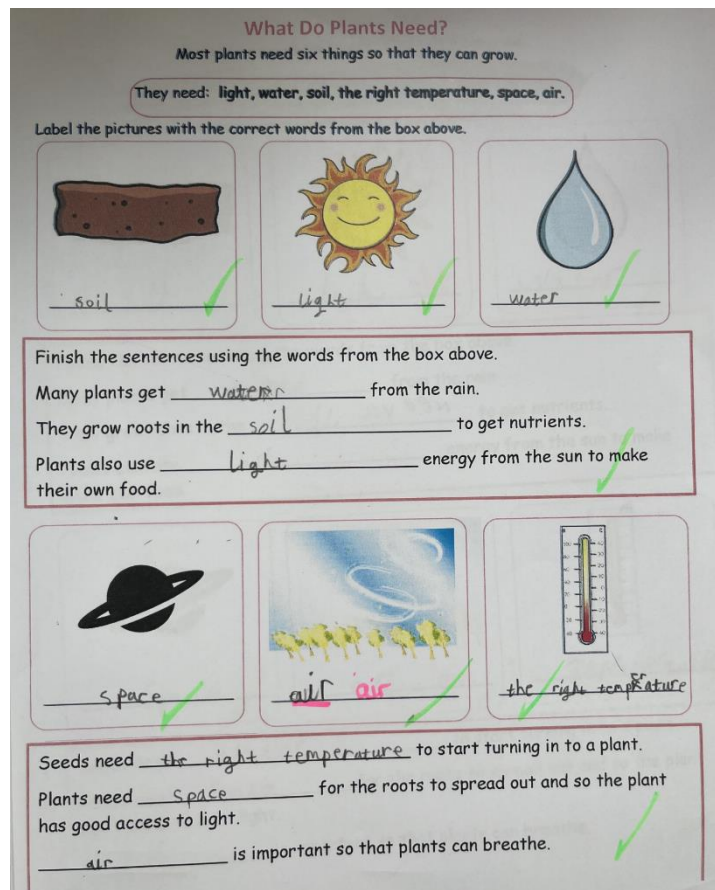 What Do Plants Need?
Most plants need six things so that they can grow.
They need: light, water, soil, the right temperature, space, air.
Label the pictures with the correct words from the box above.
soil light water
Finish the sentences using the words from the box above.
Many plants get water from the rain.
They grow roots in the soil to get nutrients.
Plants also use light energy from the sun to make
their own food.
space air air the right temperature
Seeds need the right temperature to start turning in to a plant.
Plants need space for the roots to spread out and so the plant
has good access to light.
air is important so that plants can breathe.